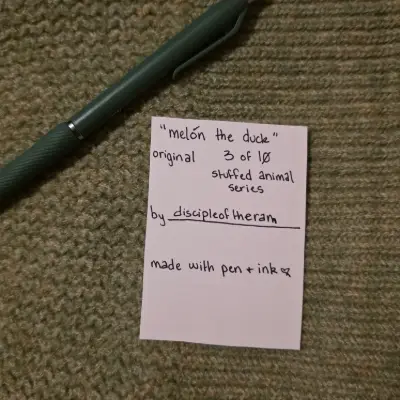 "melón the duck"
original 3 of 10
stuffed animal
series
by discipleoftheram
made with pen + ink